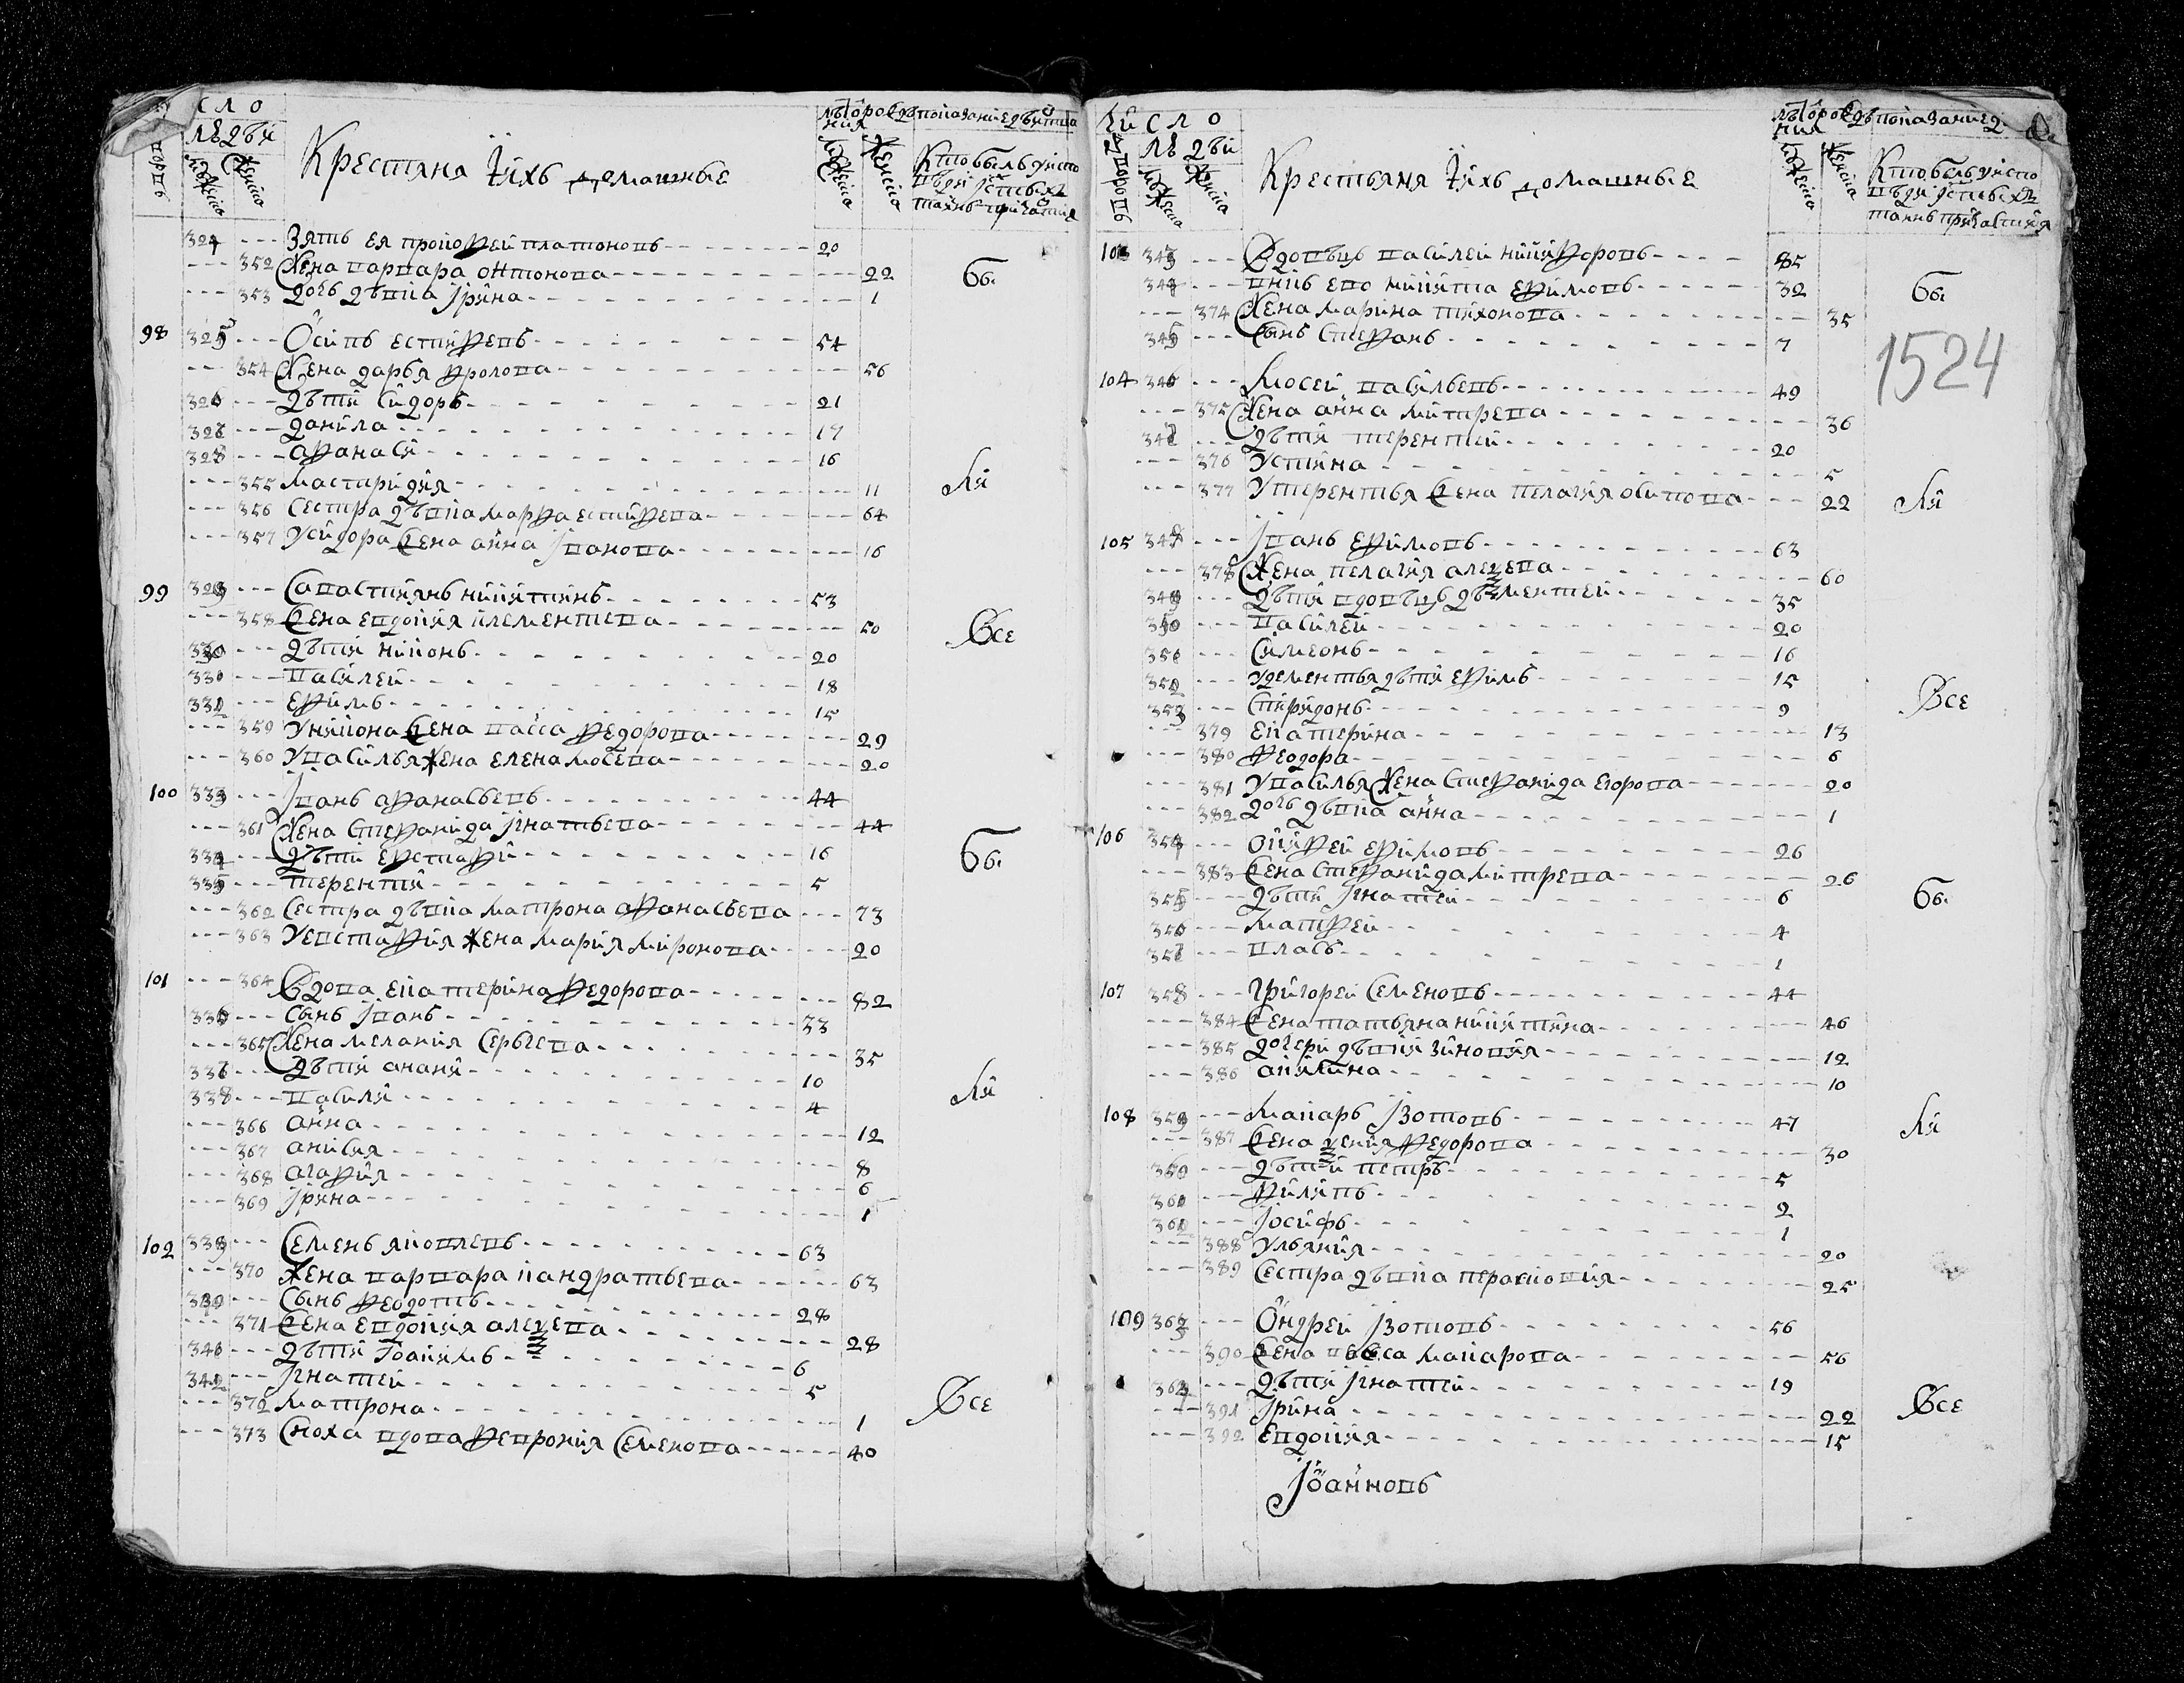 сло
людей
дворовъ
мужеска
женска
Крестьяня и ихъ домашныя
лѣта от рождения
мужеска
женска
показание действа
Кто былъ у исповеди и святыхъ таинъ причастия
324 Зять ея прокофей платоновъ 20
352 Жена варвара онтонова 22 бы
353 дочь дѣвка Ірина 1
98 325 Осипъ естифевъ 54
354 Жена дарья фролова 56
326 дѣти Сидоръ 21
327 данила 17
328 афанаси 16
355 мастридия 11 ли
356 Сестра дѣвка марфа естифева 64
357 У сидора жена анна Іванова 16
99 329 Савастиянъ никитинъ 53
358 жена евдокия клементева 50 Все
330 дѣти никонъ 20
331 василей 18
332 ефимъ 15
359 У никона жена васса федорова 29
360 У василья жена елена мосеева 20
100 333 Іванъ афанасьевъ 44
361 Жена Стефанида Ігнатьева 44
334 дѣти евстафи 16 бы
335 терентей 5
362 Сестра дѣвка матрона афанасьева 73
363 У евстафия жена мария миронова 20
101 364 Вдова екатерина федорова 82
336 Сынъ Іванъ 33
365 Жена мелания Сергеева 35
337 дѣти ананя 10 ли
338 васили 4
366 анна 12
367 анисия 8
368 агафия 6
369 Ірина 1
102 339 Семенъ яковлевъ 63
370 Жена варвара кандратьева 63
340 Сынъ федотъ 28
371 Жена евдокия алеѯева 28
341 дѣти Іоакимъ 6
342 Ігнатей 5 Все
372 матрона 1
373 Сноха вдова феврония Семенова 40
Число
людей
дворовъ
мужеска
женска
Крестьяня и ихъ домашныя
лѣта от рождения
мужеска
женска
показание
Кто былъ у исповеди и святыхъ таинъ причастия
103 343 Вдовецъ василей никифоровъ 85
344 внукъ ево никита ефимовъ 32 бы
374 Жена марина тихонова 35
345 Сынъ Стефанъ 7
1524
104 346 мосей васильевъ 49
375 Жена анна митрева 36
347 дѣти терентей 20
376 Устина 5
377 У терентья жена пелагия осипова 22 ли
105 348 Іванъ ефимовъ 63
378 Жена пелагия алеѯева 60
349 дѣти вдовецъ дементей 35
350 василей 20
351 Симеонъ 16
352 У дементья дѣти ефимъ 15
353 Спиридонъ 9 Все
379 екатерина 13
380 феодора 6
381 У василья жена Стефанида егорова 20
382 дочь дѣвка анна 1
106 354 екифей ефимовъ 26
383 Жена Стефанида митрева 26
355 дѣти Ігнатей 6 бы
356 матфей 4
357 власъ 1
107 358 григорей Семеновъ 44
384 Жена татьяна никитина 46
385 дочери дѣвки зиновия 12
386 акилина 10
108 359 макаръ Ізотовъ 47 ли
387 Жена ѯения федорова 30
360 дѣти петръ 5
361 филипъ 2
362 Іосифъ 1
388 Ульяния 20
389 Сестра дѣвка парасковия 25
109 363 Ондрей Ізотовъ 56
390 Жена васса макарова 56
364 дѣти Ігнатей 19
391 Ірина 22 Все
392 евдокия 15
Іоанновъ